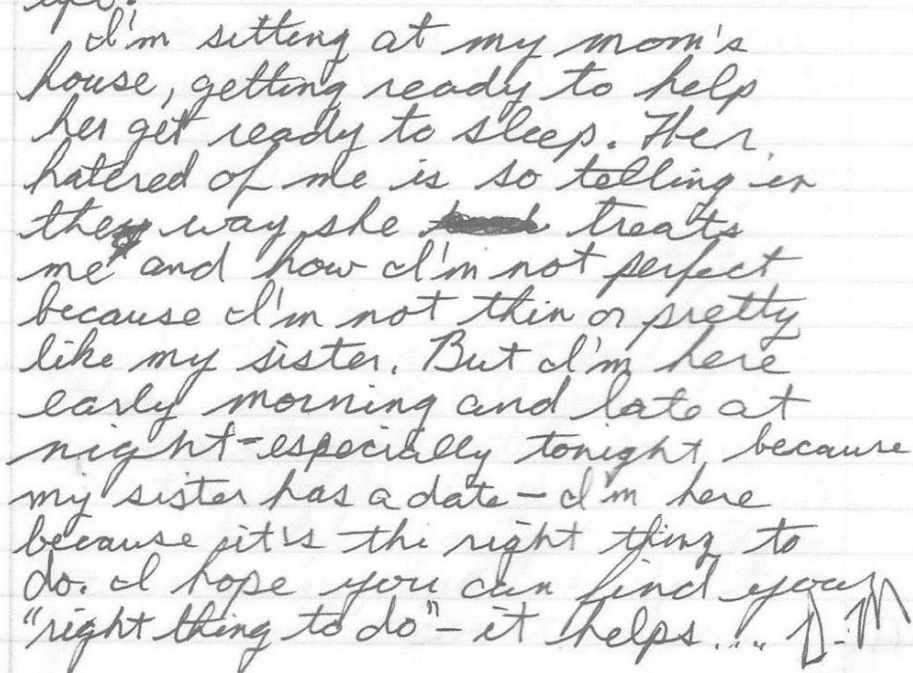 I'm sitting at my mom's
house, getting ready to help
her get ready to sleep. Her
hatered of me is so telling in
the way she treats
me and how I'm not perfect
because I'm not thin or pretty
like my sister. But I'm here
early morning and late at
night-especially tonight because
my sister has a date – I'm here
because it's the right thing to
do. I hope you can find your
"right thing to do" – it helps.... D-M